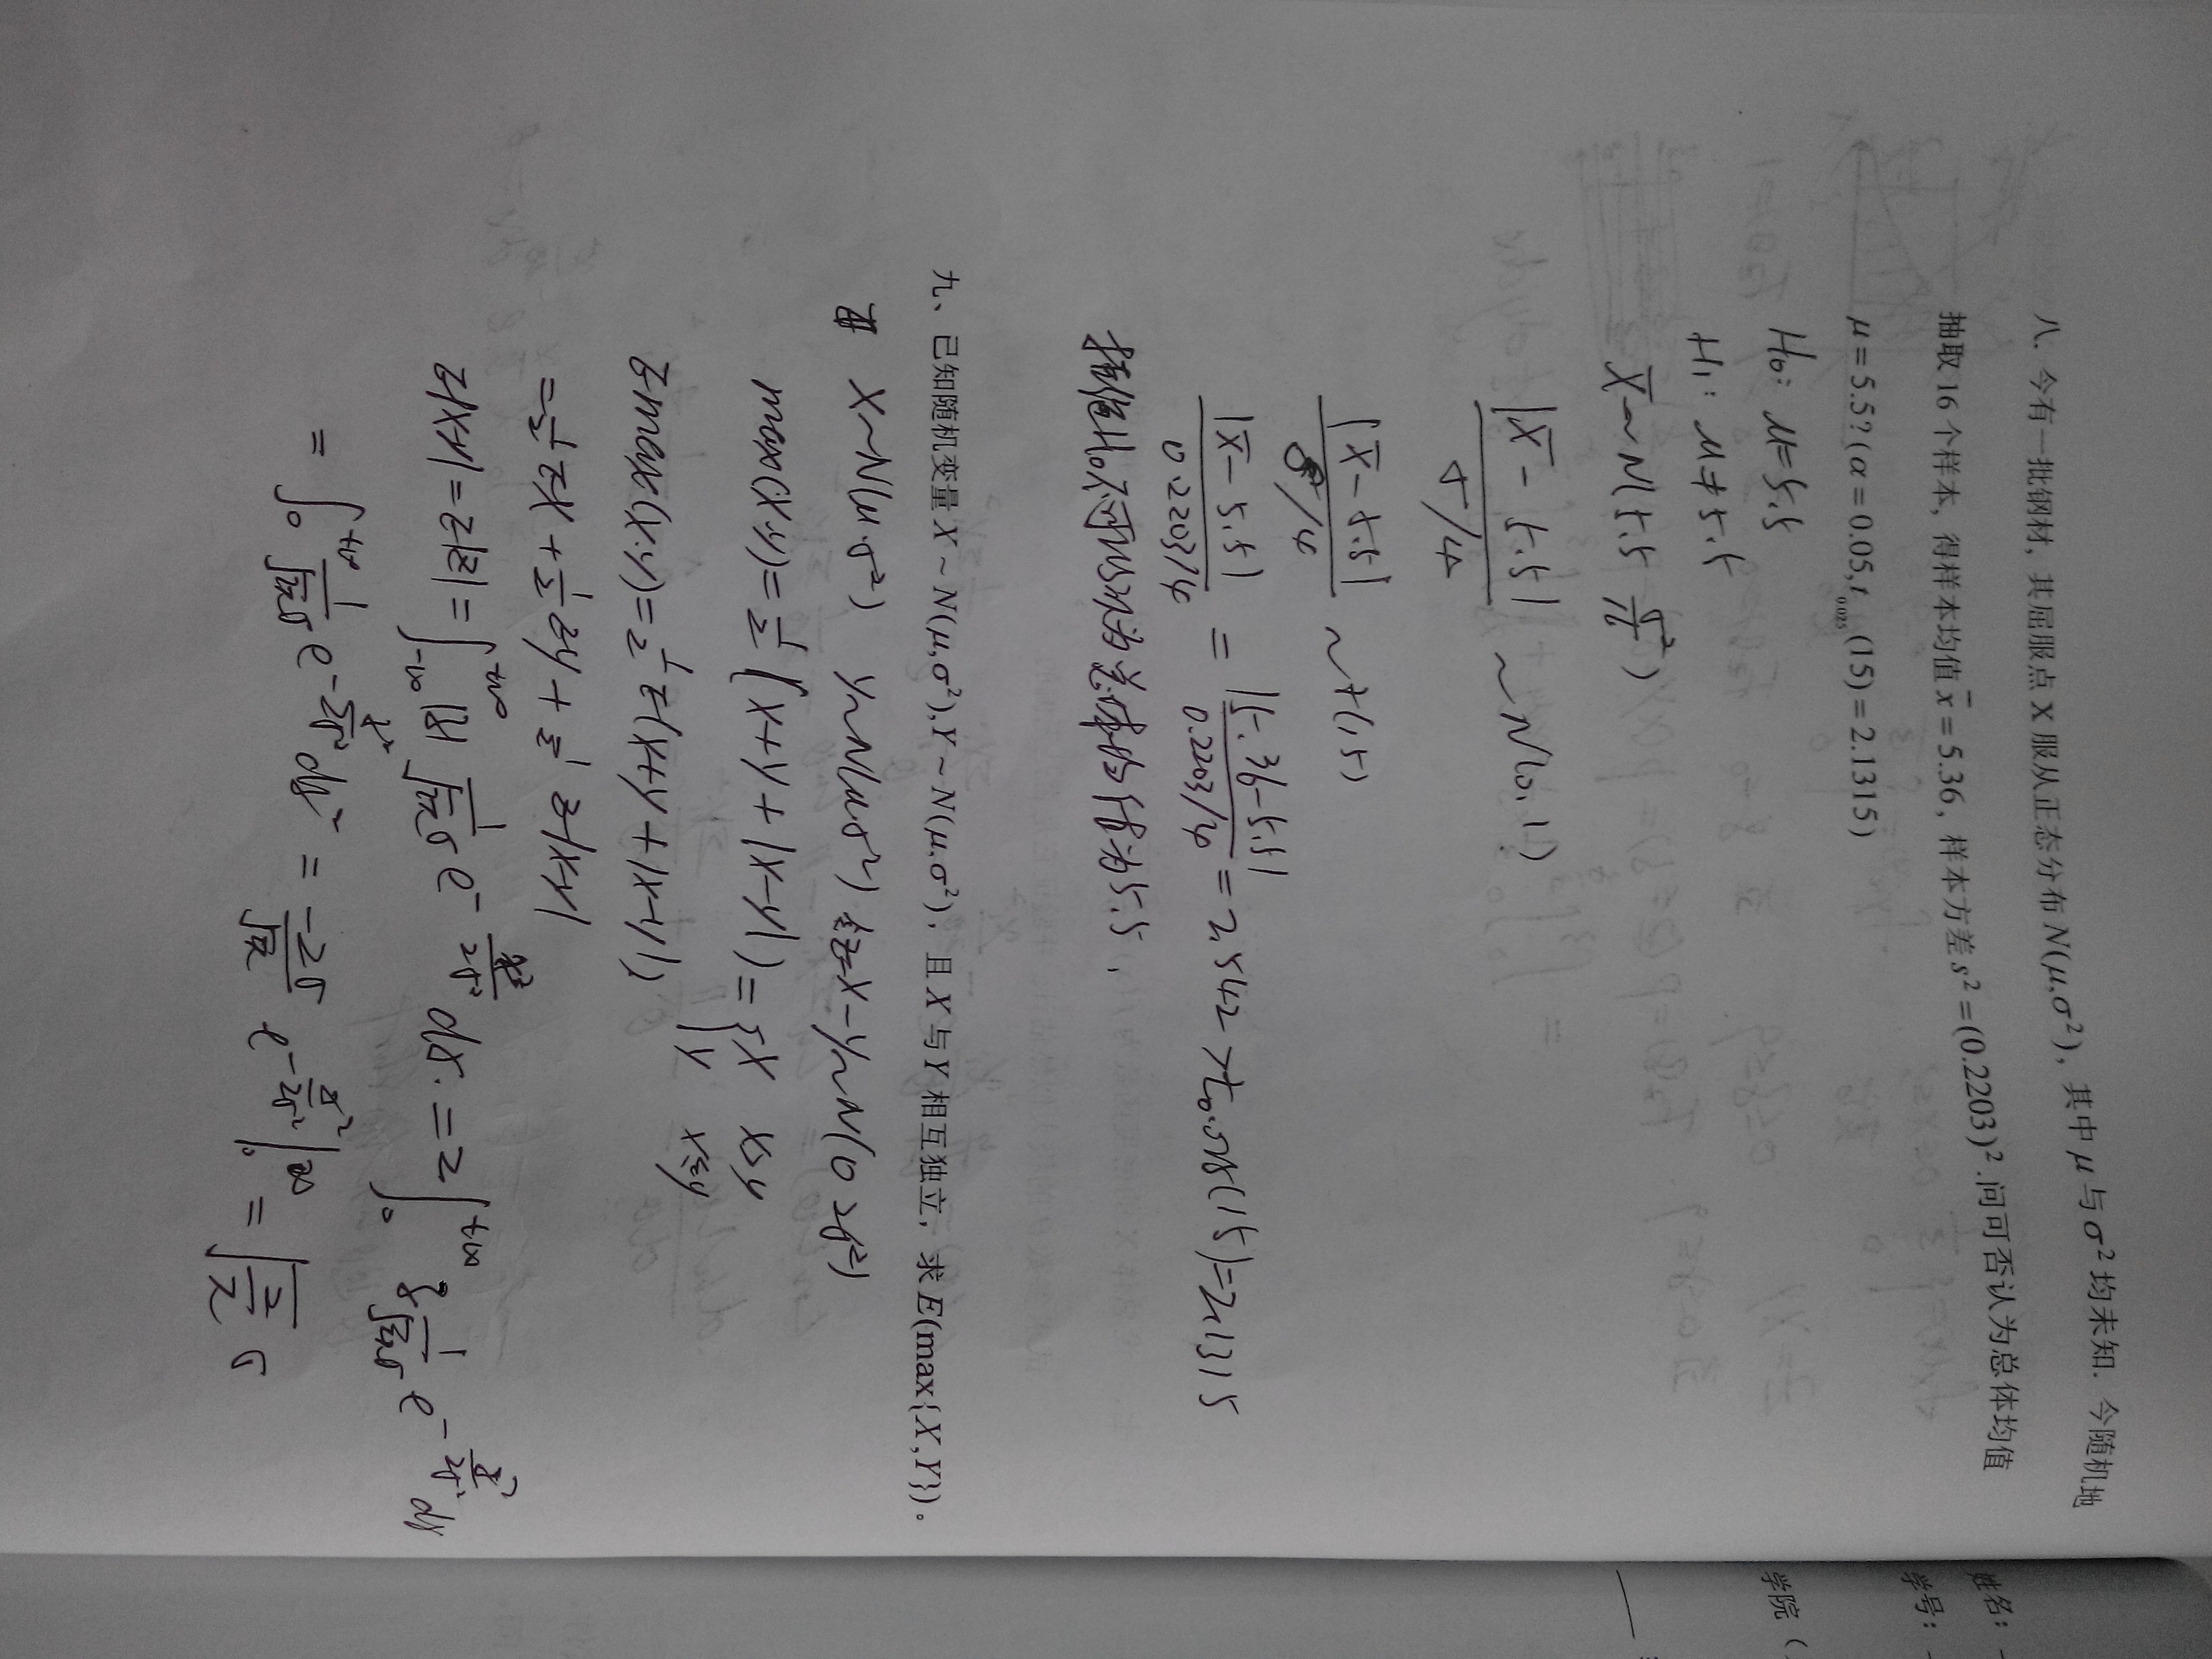 八. 今有一批钢材, 其屈服点 X 服从正态分布 N(μ,σ²), 其中 μ 与 σ² 均未知. 今随机地
抽取 16 个样本, 得样本均值 x̄ = 5.36, 样本方差 s² = (0.2203)². 问可否认为总体均值
μ = 5.5? (α = 0.05, t₀.₀₂₅ (15) = 2.1315)
H₀: μ=5.5
H₁: μ≠5.5
X̄~N(5.5 σ²/16)
|X̄-5.5| / σ/4 ~N(0,1)
|X̄-5.5| / /4 ~t(15)
|X̄-5.5| / 0.2203/4 = |5.36-5.5| / 0.2203/4 = 2.542 >t₀.₀₂₅(15)=2.1315
拒绝H₀ 不可以认为总体均值为5.5.
九、已知随机变量 X ~ N(μ,σ²), Y ~ N(μ,σ²), 且 X 与 Y 相互独立, 求 E(max{X,Y})。
X~N(μ.σ²) Y~N(μ σ²) 令Z=X-Y~N(0 2σ²)
max(X.Y)=1/2(X+Y+|X-Y|)={X X>Y
Y X≤Y
Emax(X.Y)=1/2E(X+Y+|X-Y|)
=1/2EX+1/2EY+1/2E|X-Y|
E|X-Y|=E|Z|=∫₋∞^{+∞} |z| 1/√2π σ e^{-z²/2σ²} dz.=2∫₀^{+∞} z 1/√2π σ e^{-z²/2σ²} dz
=∫₀^{+∞} 1/√2π σ e^{-z²/2σ²} dz² = -2σ/√2π e^{-z²/2σ²}|₀^∞ = √(2/π) σ
姓名:
学号:
学院(